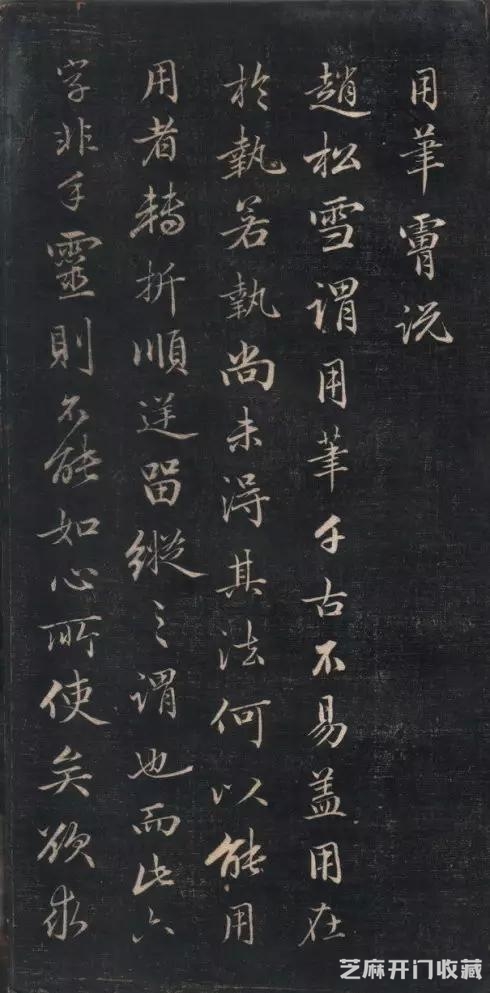 用筆霄说
趙松雪謂用筆千古不易盖用在
於執若執尚未得其法何以能用
用者轉折順逆留縱之謂也而此六
字非手靈則不能如心所使矣欲求
芝麻开门收藏